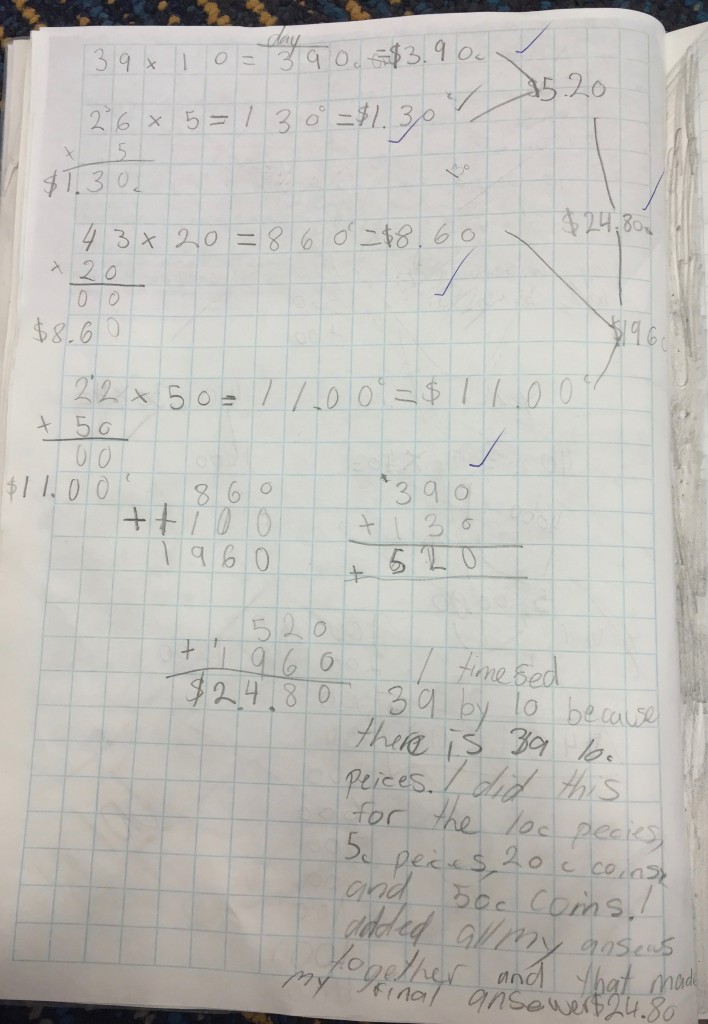 day
39 x 10 = 390c = $3.90c
$5.20
26 x 5 = 130c = $1.30c
x 5
$1.30c
43 x 20 = 860c = $8.60
$24.80c
x 20
00
$8.60
$1960
22 x 50 = 11.00c = $11.00c
+ 50
00
$11.00c
860
+ 1100
1960
390
+ 130
520
+
520
+ 1960
$24.80
I timesed
39 by 10 because
there is 39 10c
peices. I did this
for the 10c pecies,
5c peices, 20c coins,
and 50c coins. I
added all my ansews
together and that made
my final ansewer $24.80